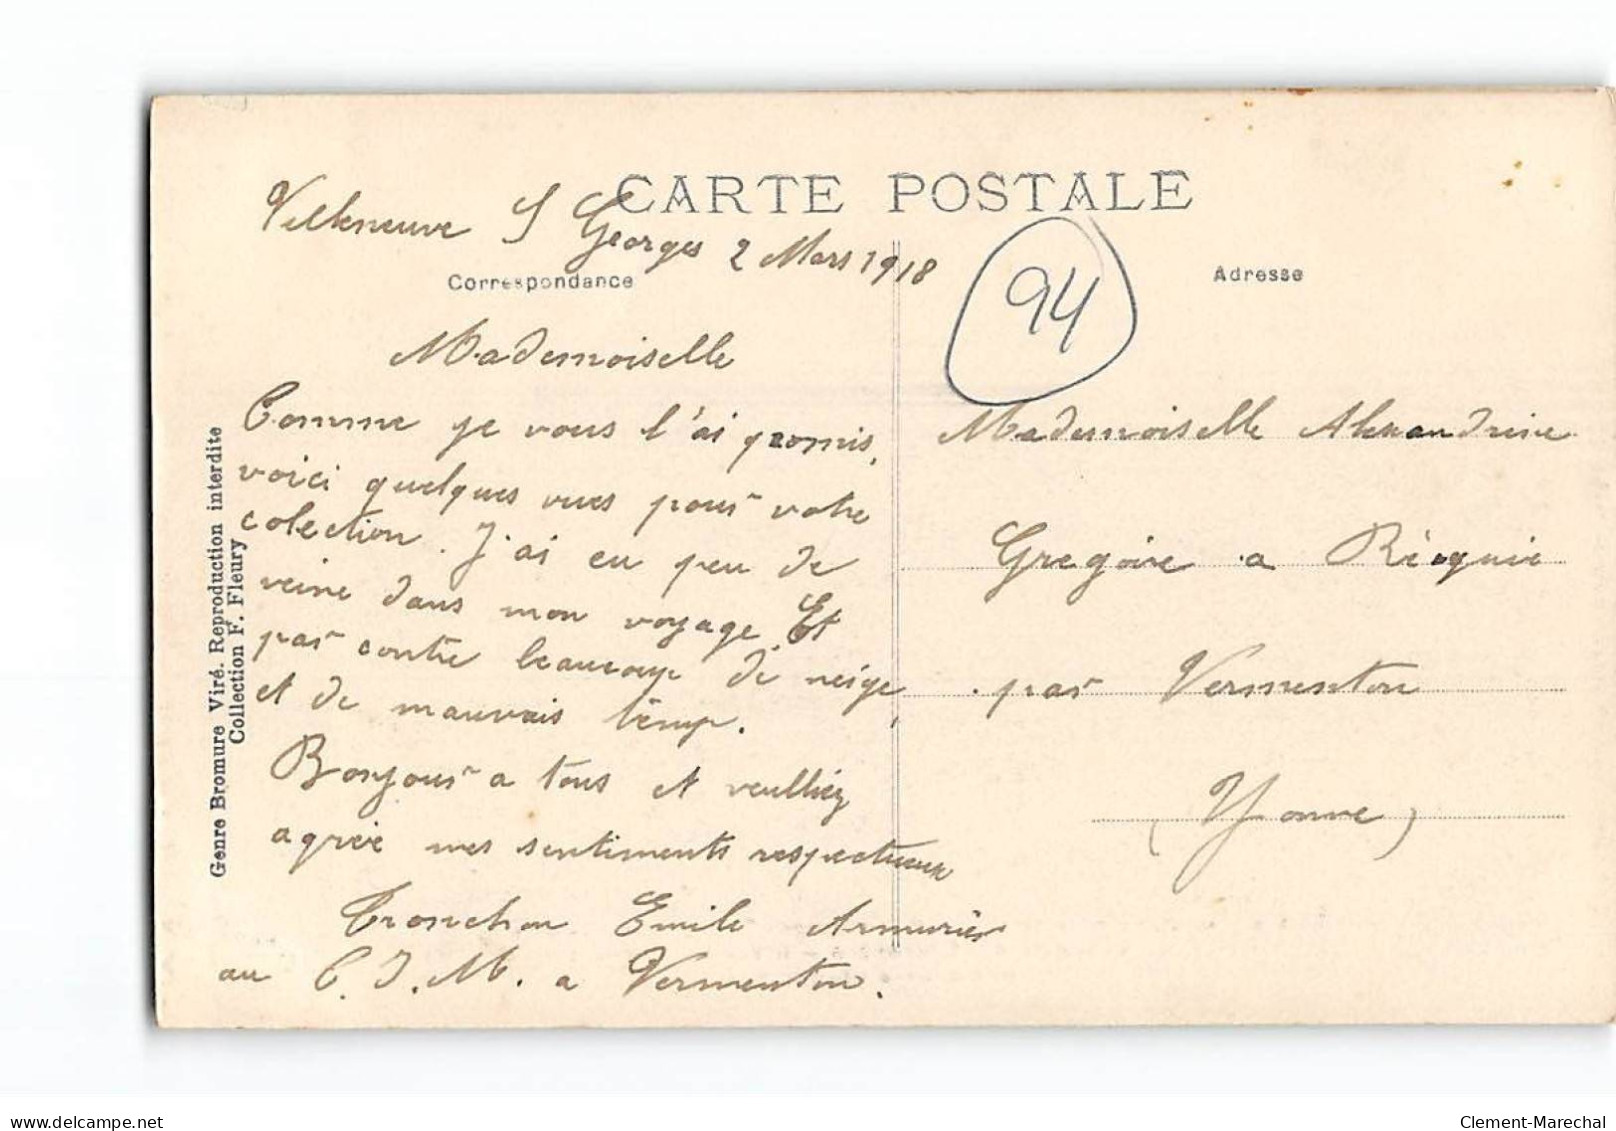 CARTE POSTALE
Villeneuve S Georges 2 Mars 1918
Correspondance
Adresse
94
Mademoiselle
Comme je vous l'ai promis,
voici quelques vues pour votre
colection. J'ai eu peu de
veine dans mon voyage. Et
par contre beaucoup de neige,
et de mauvais temp.
Bonjour a tous et veulliez
agrée mes sentiments respectueux
Tronchon Emile Armurier
au C.I.M. a Vermenton.
Mademoiselle Alexandrine
Gregoire a
par Vermenton
(Yonne)
Genre Bromure Viré. Reproduction interdite
Collection F. Fleury
delcampe.net
Clement-Marechal